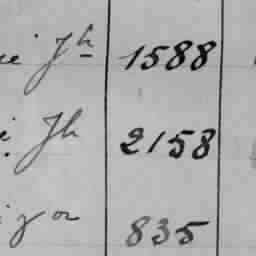 Jh 1588
Jh 2158
835